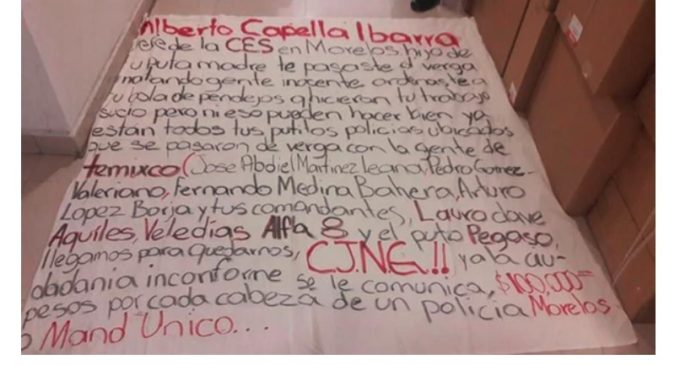 Alberto Capella Ibarra
jefe de la CES en Morelos hijo de
tu puta madre te pasaste d verga
matando gente inosente ordenastea
tu bola de pendejos q hicieron tu trabajo
sucio pero ni eso pueden hacer bien ya
están todos tus putitos policías ubicados
que se pasaron de verga con la gente de
temixco (Jose Abdiel Martinez Leana, Pedro Gomez-
Valeriano, Fernando Medina Bahera, Arturo
Lopez Borja y tus comandantes, Lauro clave
Aquiles, Veledias Alfa 8 y el puto Pegaso,
llegamos para quedarnos, C.J.N.G.!! ya la ciu-
dadania inconforme se le comunica, $100,000=
pesos por cada cabeza de un policia Morelos
o Mand Unico...